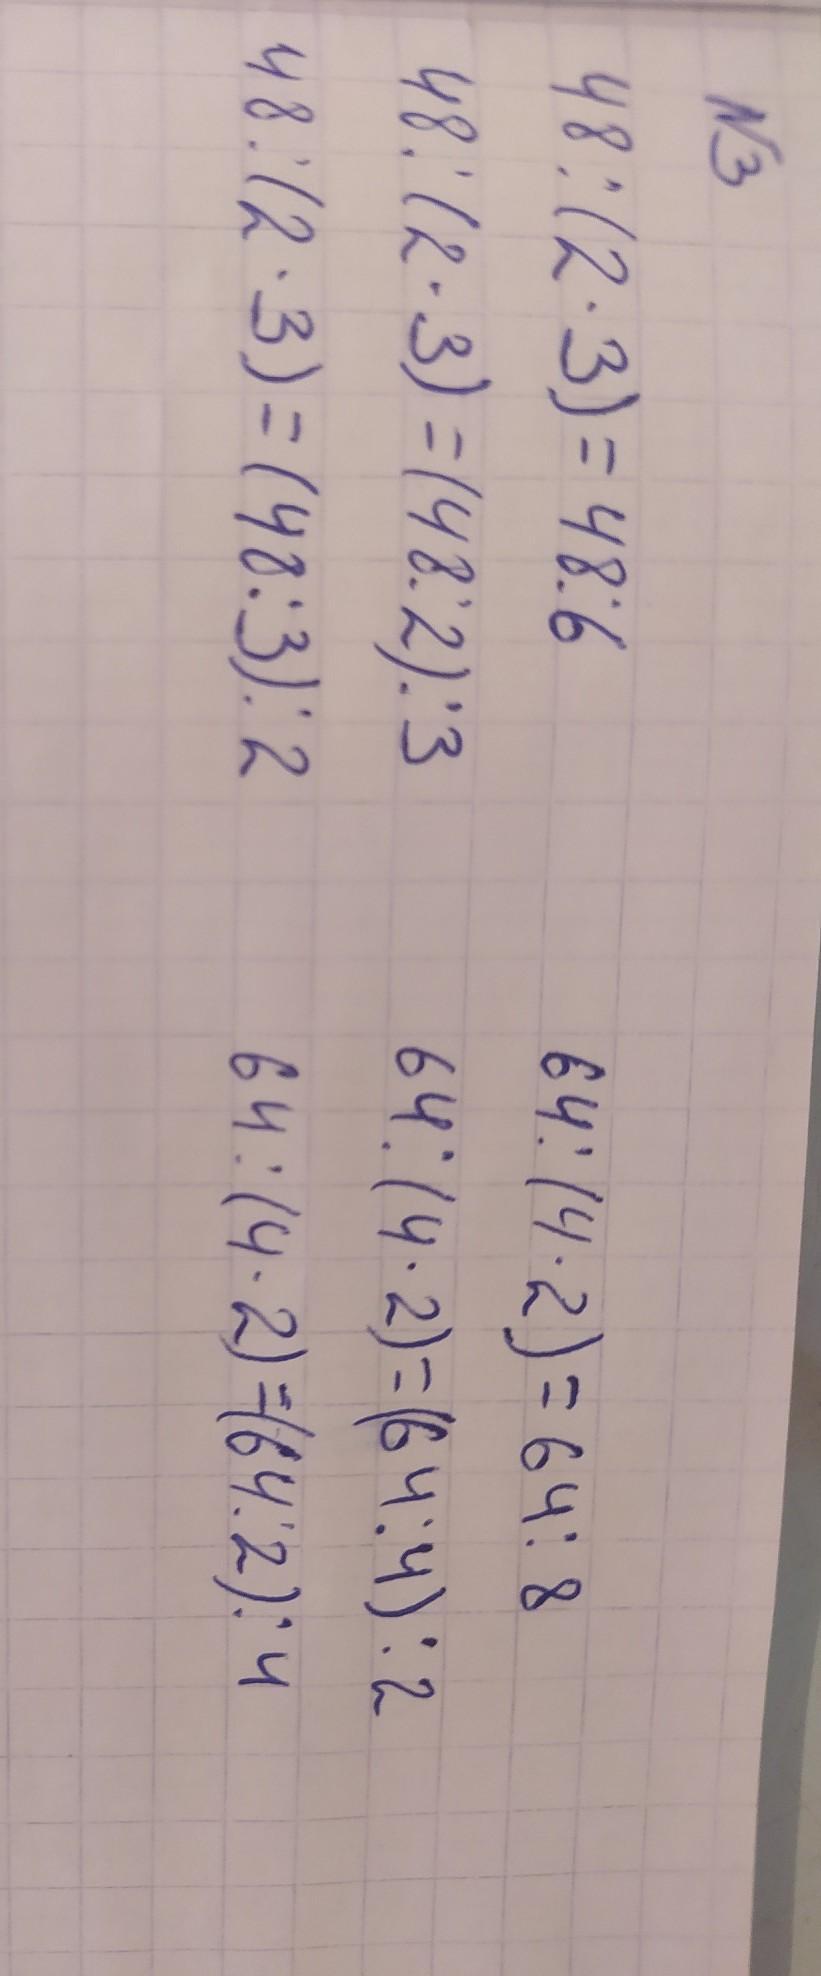 №3
48:(2·3)=48:6
48:(2·3)=(48:2):3
48:(2·3)=(48:3):2
64:(4·2)=64:8
64:(4·2)=(64:4):2
64:(4·2)=(64:2):4